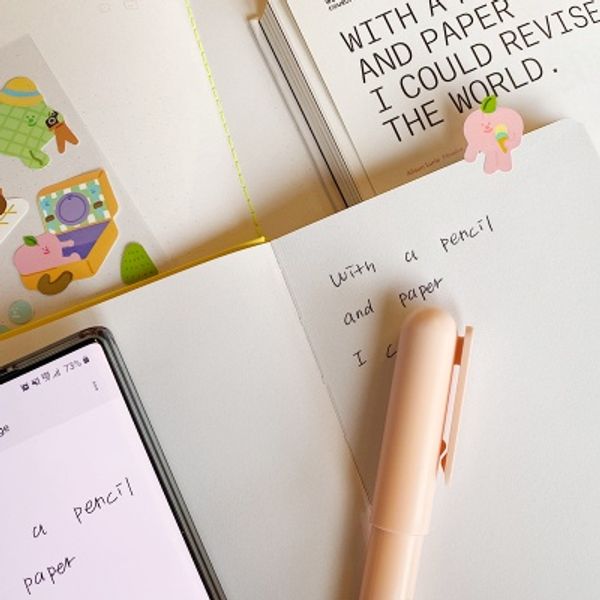 WITH A
AND PAPER
I COULD REVISE
THE WORLD.
with a pencil
and paper
I
73%
a pencil
paper